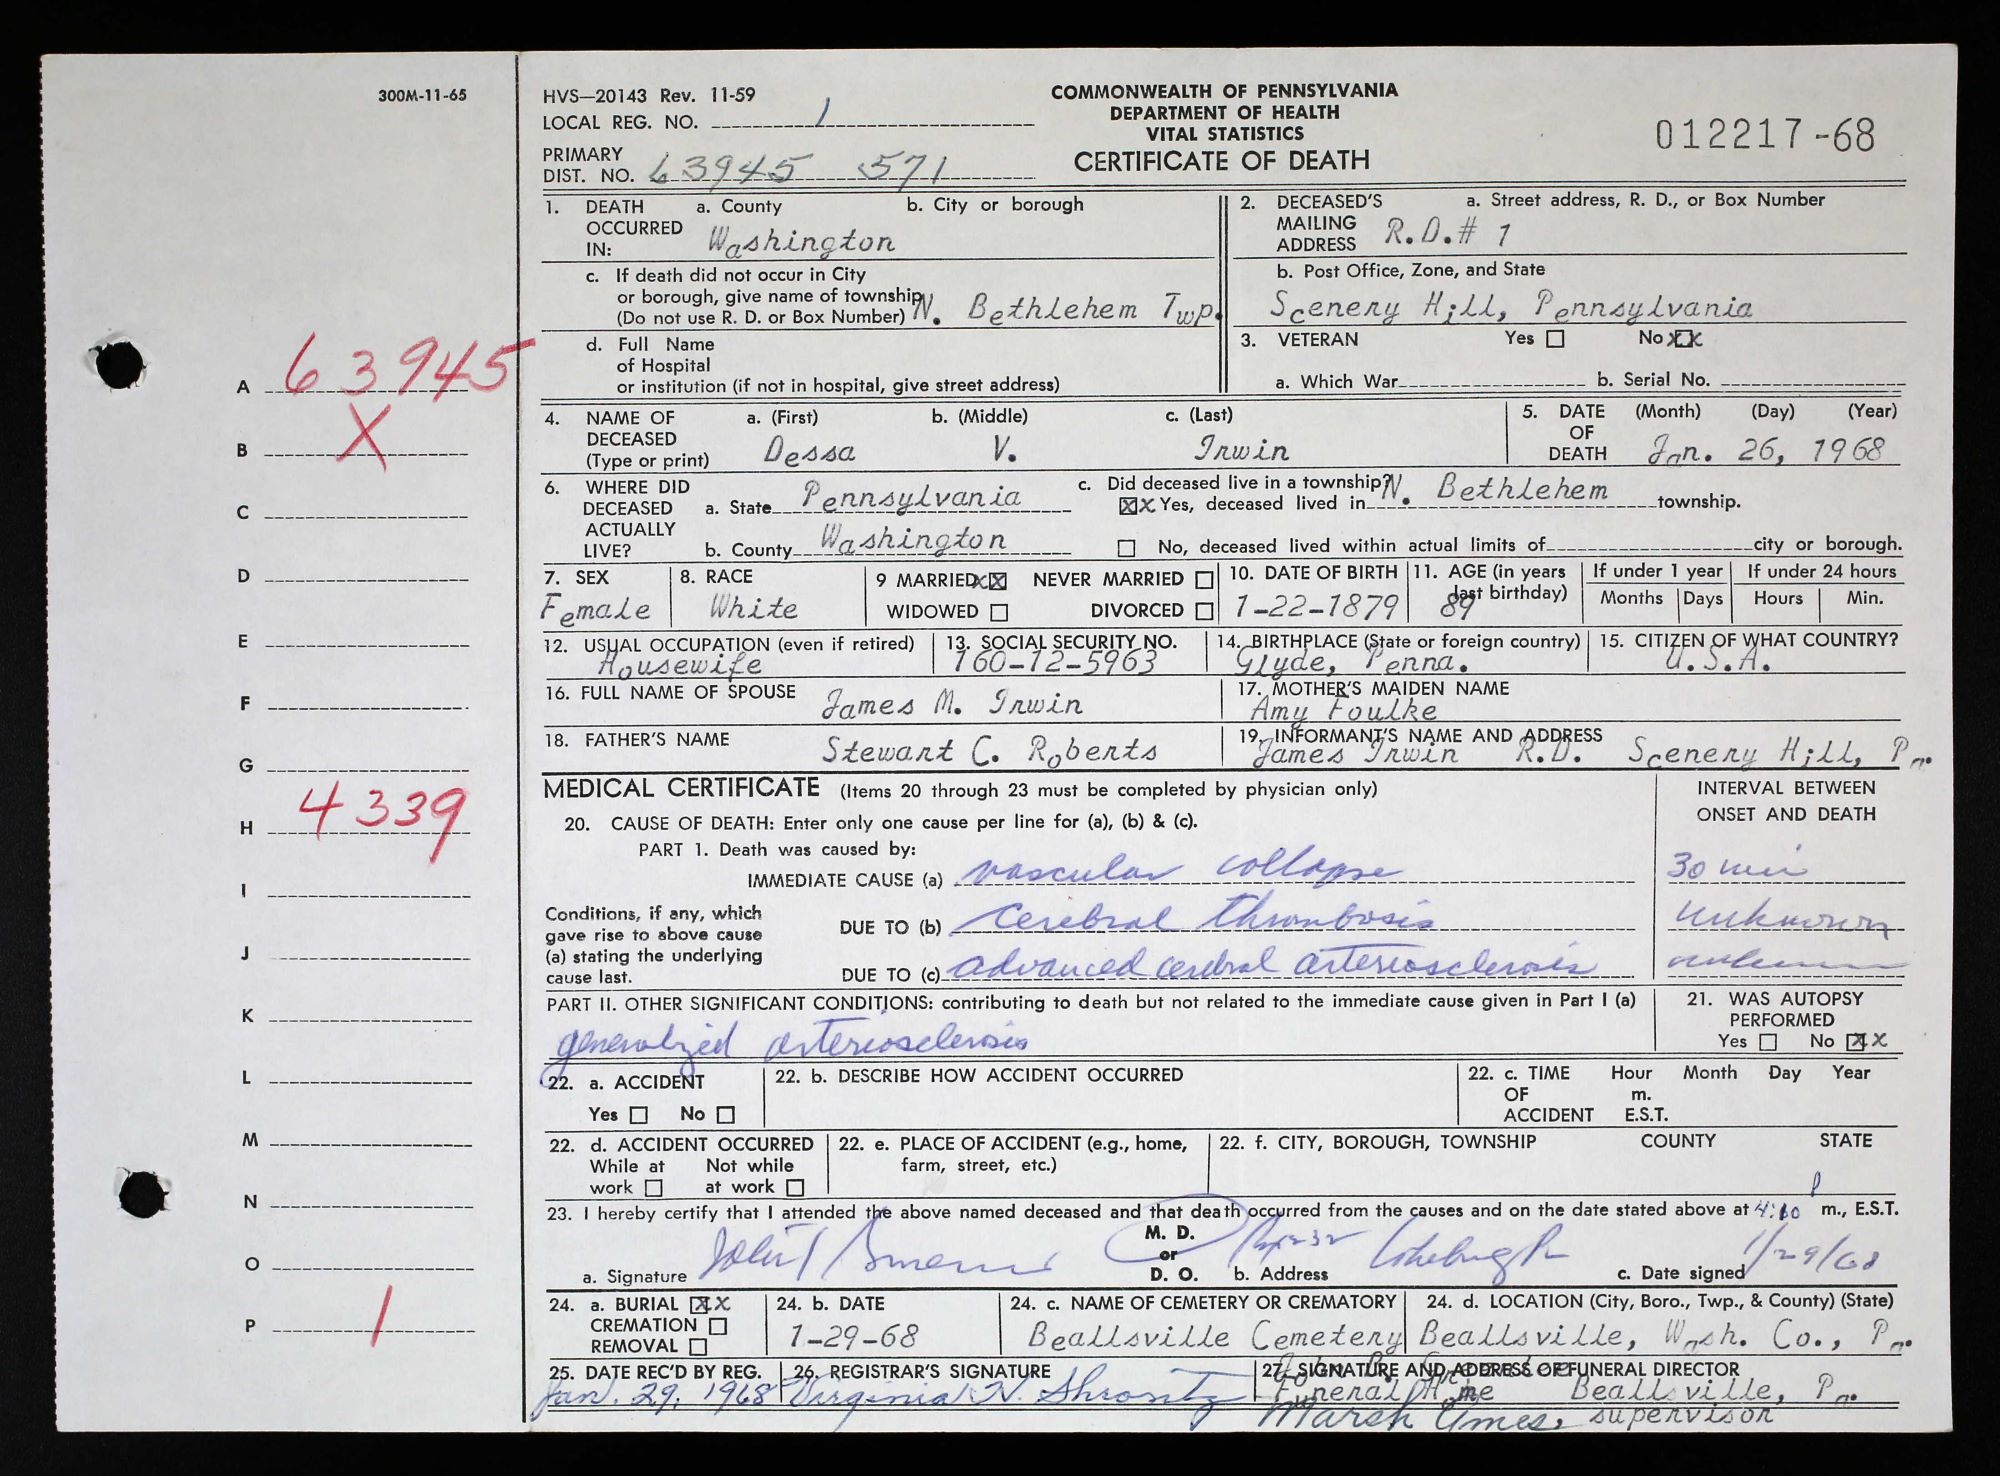 300M-11-65
A 63945
B X
C
D
E
F
G
H 4339
I
J
K
L
M
N
O
P 1
HVS—20143 Rev. 11-59
LOCAL REG. NO. 1
PRIMARY
DIST. NO. 63945 571
COMMONWEALTH OF PENNSYLVANIA
DEPARTMENT OF HEALTH
VITAL STATISTICS
CERTIFICATE OF DEATH
012217-68
1. DEATH OCCURRED IN: a. County b. City or borough
Washington
c. If death did not occur in City
or borough, give name of township
(Do not use R. D. or Box Number) N. Bethlehem Twp.
d. Full Name
of Hospital
or institution (if not in hospital, give street address)
2. DECEASED'S MAILING ADDRESS a. Street address, R. D., or Box Number
R.D.# 1
b. Post Office, Zone, and State
Scenery Hill, Pennsylvania
3. VETERAN Yes No XX
a. Which War b. Serial No.
4. NAME OF DECEASED (Type or print) a. (First) b. (Middle) c. (Last)
Dessa V. Irwin
5. DATE OF DEATH (Month) (Day) (Year)
Jan. 26, 1968
6. WHERE DID DECEASED ACTUALLY LIVE? a. State Pennsylvania
b. County Washington
c. Did deceased live in a township?
XX Yes, deceased lived in N. Bethlehem township.
No, deceased lived within actual limits of city or borough.
7. SEX
Female
8. RACE
White
9 MARRIED XX NEVER MARRIED
WIDOWED DIVORCED
10. DATE OF BIRTH
1-22-1879
11. AGE (in years last birthday)
89
If under 1 year
Months Days
If under 24 hours
Hours Min.
12. USUAL OCCUPATION (even if retired)
Housewife
13. SOCIAL SECURITY NO.
160-12-5963
14. BIRTHPLACE (State or foreign country)
Glyde, Penna.
15. CITIZEN OF WHAT COUNTRY?
U.S.A.
16. FULL NAME OF SPOUSE James M. Irwin
17. MOTHER'S MAIDEN NAME
Amy Foulke
18. FATHER'S NAME Stewart C. Roberts
19. INFORMANT'S NAME AND ADDRESS
James Irwin R.D. Scenery Hill, Pa.
MEDICAL CERTIFICATE (Items 20 through 23 must be completed by physician only)
INTERVAL BETWEEN
ONSET AND DEATH
20. CAUSE OF DEATH: Enter only one cause per line for (a), (b) & (c).
PART 1. Death was caused by:
IMMEDIATE CAUSE (a) vascular collapse 30 min
Conditions, if any, which
gave rise to above cause
(a) stating the underlying
cause last.
DUE TO (b) Cerebral thrombosis unknown
DUE TO (c) advanced cerebral arteriosclerosis unknown
PART II. OTHER SIGNIFICANT CONDITIONS: contributing to death but not related to the immediate cause given in Part I (a)
generalized arteriosclerosis
21. WAS AUTOPSY
PERFORMED
Yes No XX
22. a. ACCIDENT
Yes No
22. b. DESCRIBE HOW ACCIDENT OCCURRED
22. c. TIME OF ACCIDENT Hour Month Day Year
m.
E.S.T.
22. d. ACCIDENT OCCURRED
While at work Not while at work
22. e. PLACE OF ACCIDENT (e.g., home,
farm, street, etc.)
22. f. CITY, BOROUGH, TOWNSHIP COUNTY STATE
23. I hereby certify that I attended the above named deceased and that death occurred from the causes and on the date stated above at P m., E.S.T.
a. Signature M. D. or D. O. b. Address c. Date signed 1/29/68
24. a. BURIAL XX
CREMATION
REMOVAL
24. b. DATE
1-29-68
24. c. NAME OF CEMETERY OR CREMATORY
Beallsville Cemetery
24. d. LOCATION (City, Boro., Twp., & County) (State)
Beallsville, Wash. Co., Pa.
25. DATE REC'D BY REG.
Jan. 29, 1968
26. REGISTRAR'S SIGNATURE
Virginia N. Shrontz
27. SIGNATURE AND ADDRESS OF FUNERAL DIRECTOR
Funeral Home Beallsville, Pa.
Marsh Ames, supervisor